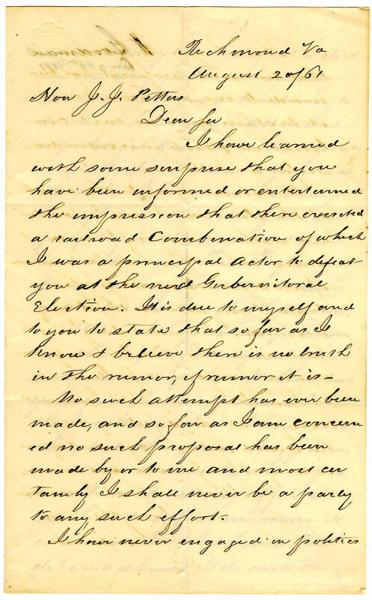 Richmond Va
August 20/61
Hon J. J. Pettus
Dear Sir
I have learned
with some surprise that you
have been informed or entertained
the impression that there existed
a railroad Combination of which
I was a principal Actor to defeat
you at the next Gubernitoral
Election. It is due to myself and
to you to state that so far as I
know & believe there is no truth
in the rumor, if rumor it is—
No such attempt has ever been
made, and so far as I am concern
ed no such proposal has been
made by or to me and most cer
tainly I shall never be a party
to any such effort.
I have never engaged in politics